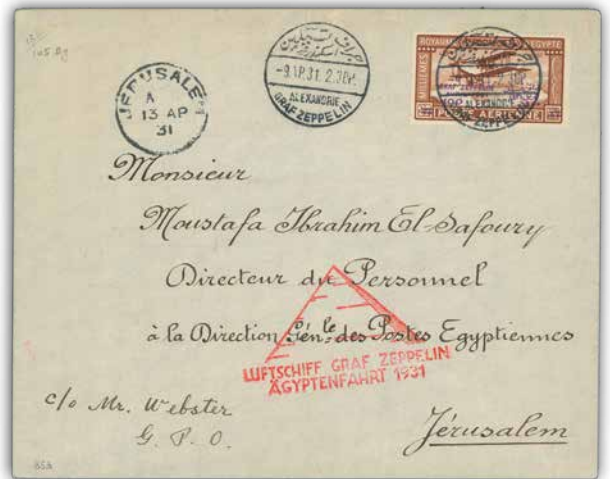 JERUSALEM
A
13 AP
31
جراف تسبلين
اسكندرية
-9.AP.31.2.30P.
ALEXANDRIE
GRAF ZEPPELIN
ROYAUME
EGYPTE
MILLIEMES
GRAF ZEPPELIN
ALEXANDRIE
GRAF ZEPPELIN
Monsieur
Moustafa Ibrahim El-Safoury
Directeur du Personnel
à la Direction Génle. des Postes Egyptiennes
LUFTSCHIFF GRAF ZEPPELIN
ÄGYPTENFAHRT 1931
c/o Mr. Webster
G. P. O.
Jérusalem